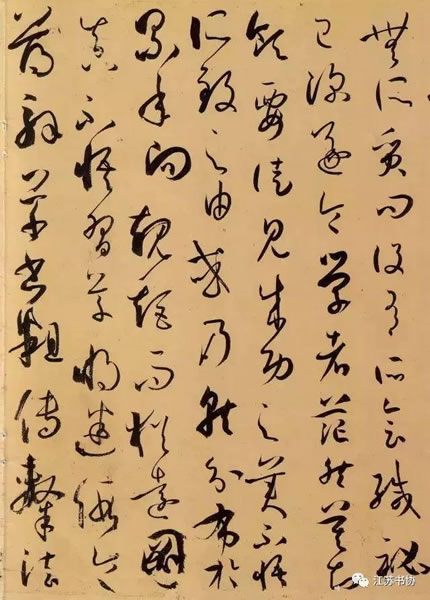 無所質問設有所會緘秘
已深遂令學者茫然莫知
領要徒見成功之美不悟
所致之由或乃就分布於
累年向規矩而猶遠圖
真不悟習草將迷假令
薄解草書粗傳隸法
江苏书协